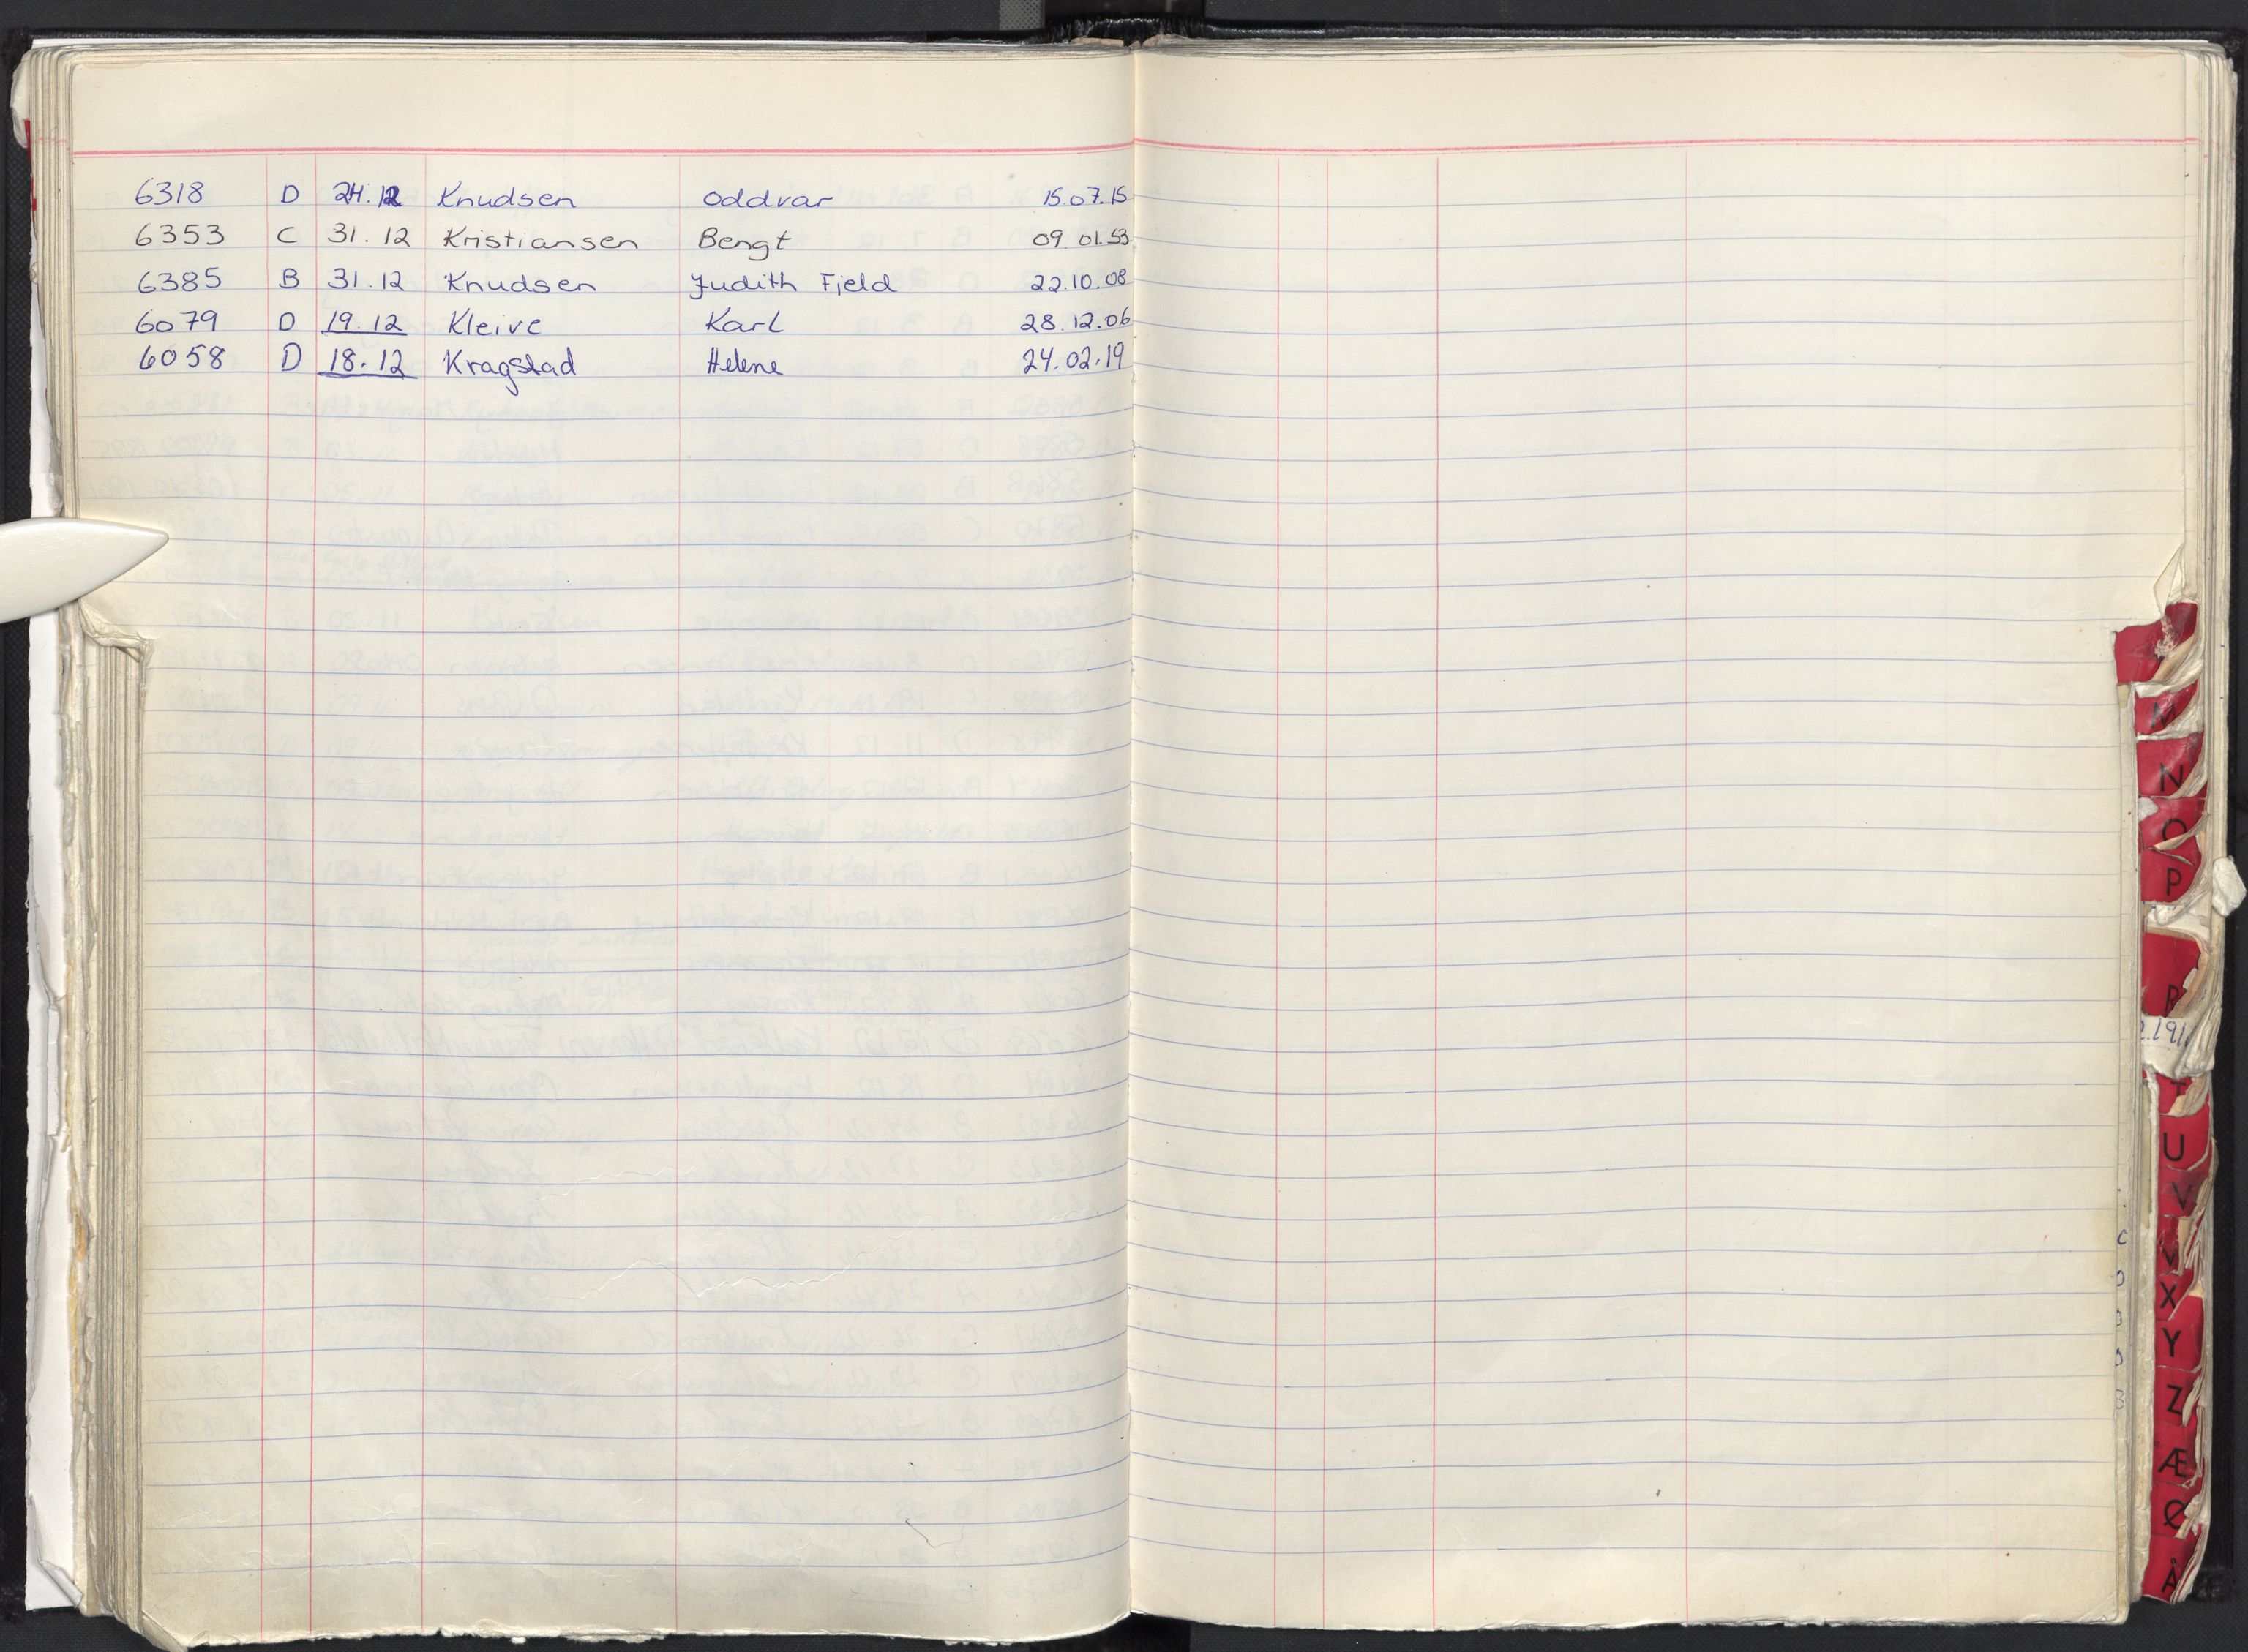 6318 D 24.12 Knudsen Oddvar 15.07.15
6353 C 31.12 Kristiansen Bengt 09.01.53
6385 B 31.12 Knudsen Judith Fjeld 22.10.08
6079 D 19.12 Kleive Karl 28.12.06
6058 D 18.12 Kragstad Helene 24.02.19
M
N
O
P
R
2.191
U
V
X
Y
Z
Æ
Ø
Å